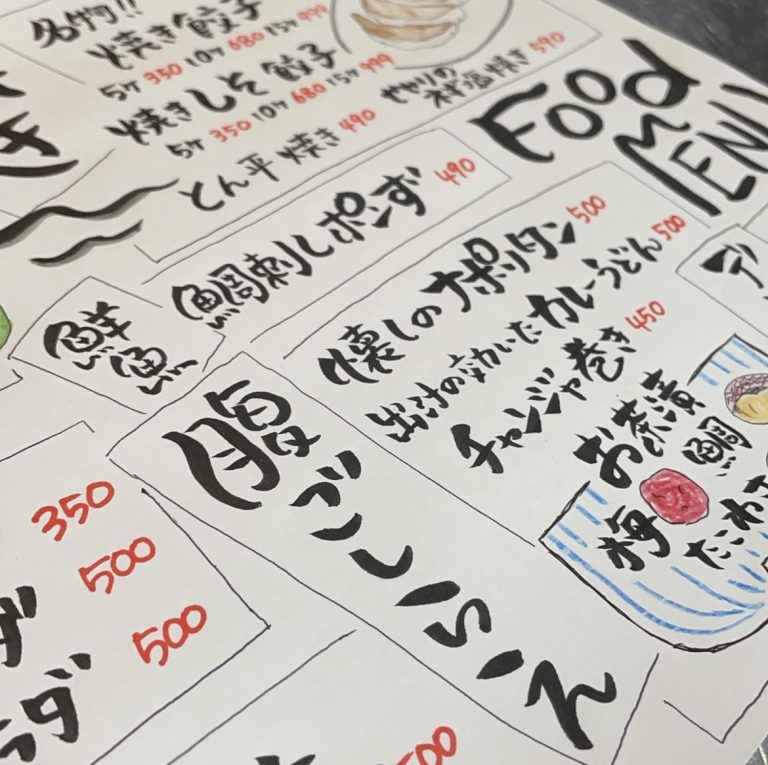 名物!!
焼き餃子
5ケ 350 10ケ 680 15ケ 999
焼きしそ餃子
5ケ 350 10ケ 680 15ケ 999
とん平焼き 490
590
FOOD
MENU
鮮魚
鯛刺しポンず 490
腹ごしらえ
懐しのナポリタン 500
出汁の効いたカレーうどん 500
チャンジャ巻き 450
お茶漬
梅
鯛
たこわさ
デ
き
350
500
500
ラダ
500